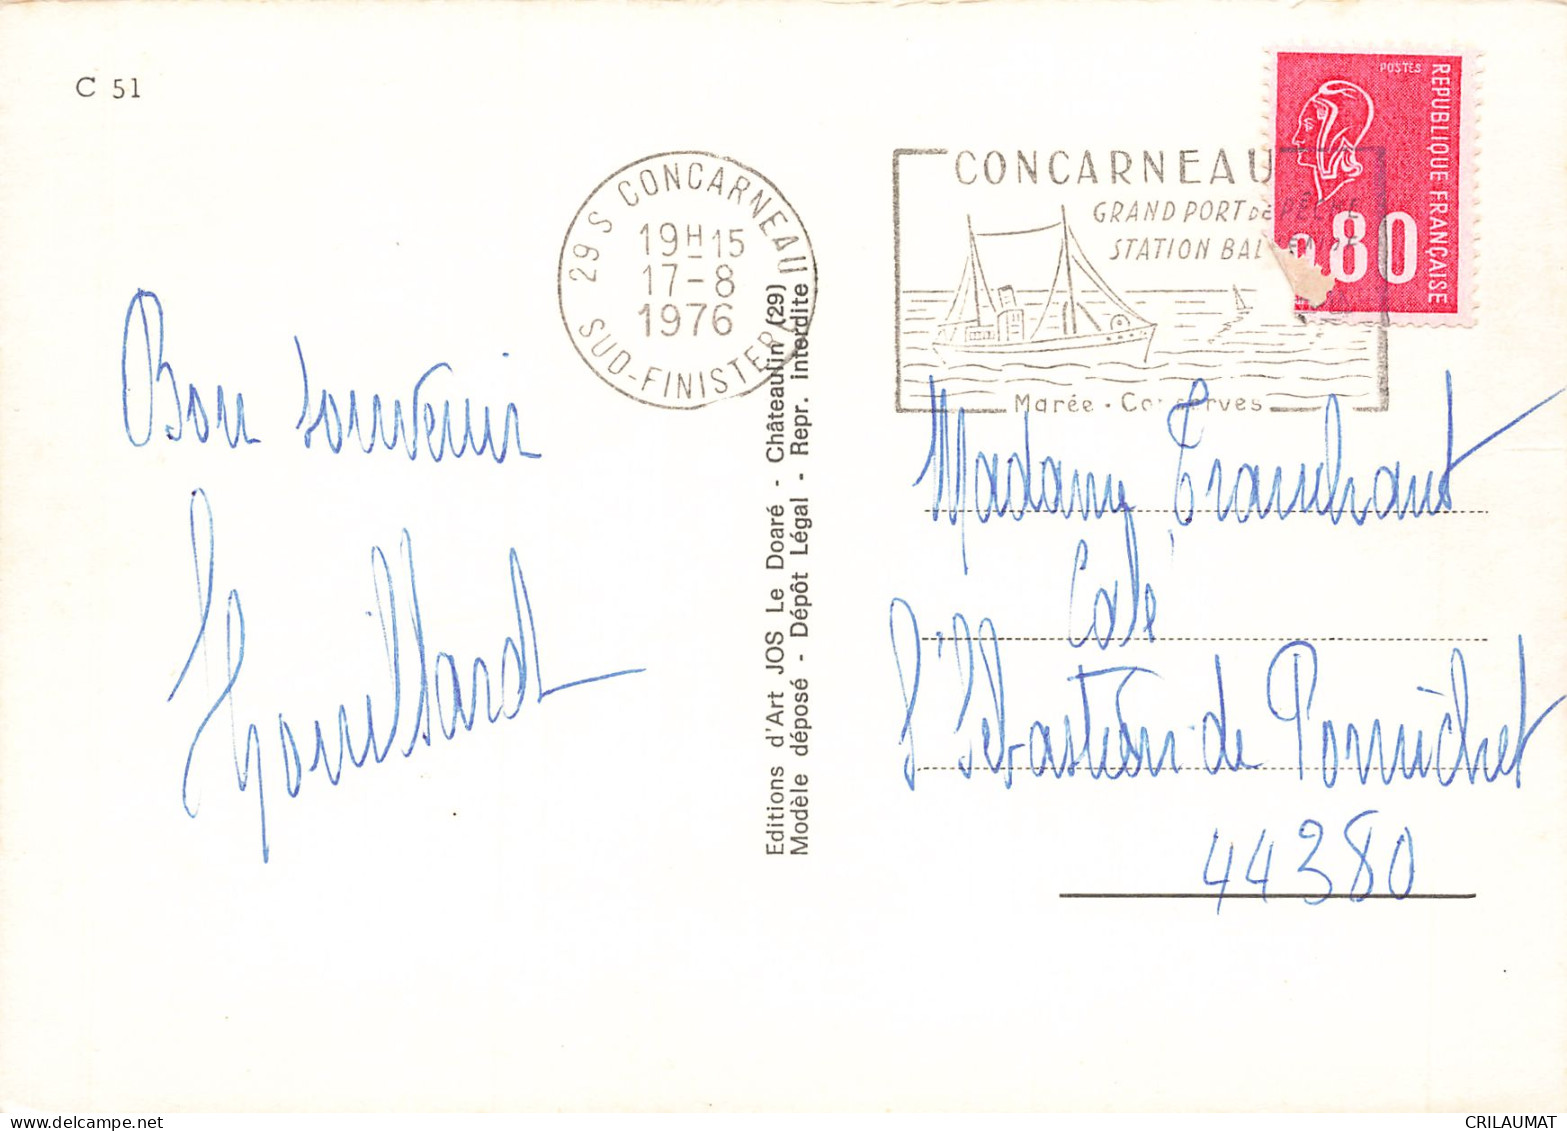 C 51
29 S CONCARNEAU
19H15
17-8
1976
SUD-FINISTERE
CONCARNEAU
GRAND PORT DE PÊCHE
STATION BALNEAIRE
Marée · Conserves
POSTES
REPUBLIQUE FRANÇAISE
0.80
Bon souvenir
Editions d'Art JOS Le Doaré - Châteaulin (29)
Modèle déposé - Dépôt Légal - Repr. interdite
Madame Tranchant
Café
St Sébastien de Pornichet
44380
CRILAUMAT